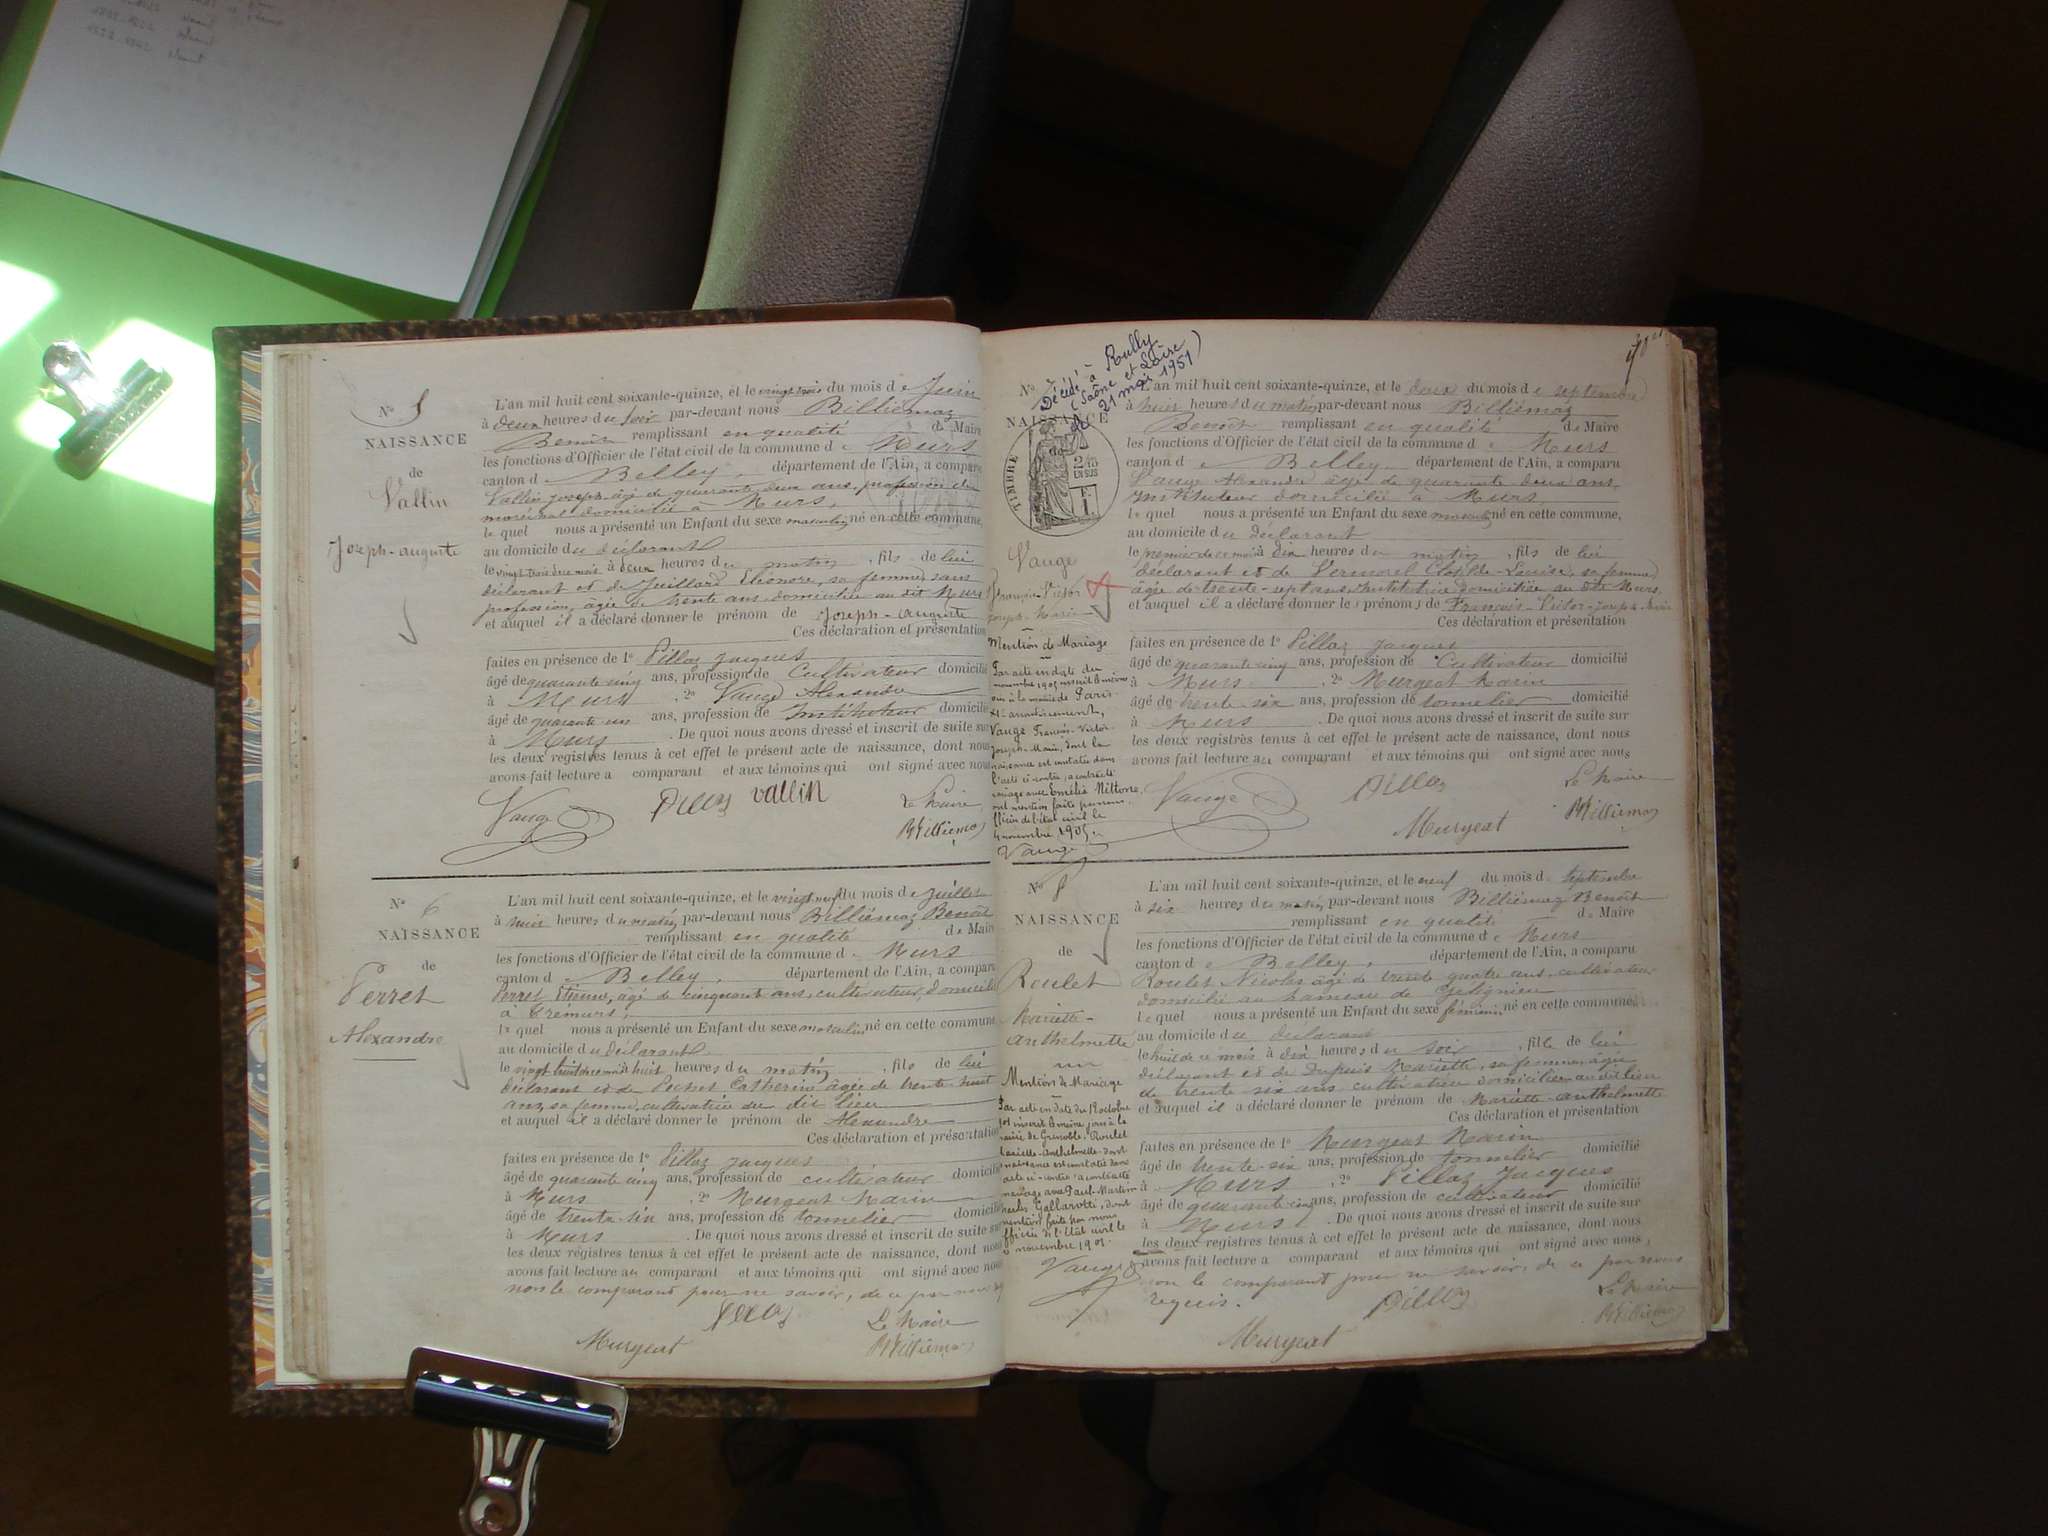 N° 5
NAISSANCE
de
Vallin
Joseph-auguste
L'an mil huit cent soixante-quinze, et le vingt trois du mois de Juin
à deux heures du soir par-devant nous Billiémaz
Benoît remplissant en qualité de Maire
les fonctions d'Officier de l'état civil de la commune de Murs
canton de Belley département de l'Ain, a comparu
Vallin Joseph âgé de quarante deux ans, profession de
maréchal domicilié à Murs,
lequel nous a présenté un Enfant du sexe masculin né en cette commune,
au domicile du déclarant
le vingt trois de ce mois à deux heures du matin, fils de lui
déclarant et de Juillard Eléonore, sa femme, sans
profession, âgée de trente ans domiciliée au dit Murs
et auquel il a déclaré donner le prénom de Joseph-auguste
Ces déclaration et présentation
faites en présence de 1° Pillaz Jacques
âgé de quarante cinq ans, profession de Cultivateur domicilié
à Murs, 2° Vauge Alexandre
âgé de quarante ans, profession de Instituteur domicilié
à Murs. De quoi nous avons dressé et inscrit de suite sur
les deux registres tenus à cet effet le présent acte de naissance, dont nous
avons fait lecture a comparant et aux témoins qui ont signé avec nous
Vauge Pillaz Vallin Le Maire
Billiémaz
N° 6
NAISSANCE
de
Perret
Alexandre
L'an mil huit cent soixante-quinze, et le vingt neuf du mois de Juillet
à huit heures du matin par-devant nous Billiémaz Benoît
remplissant en qualité de Maire
les fonctions d'Officier de l'état civil de la commune de Murs
canton de Belley, département de l'Ain, a comparu
Perret Etienne, âgé de cinquante ans, cultivateur, domicilié
à
lequel nous a présenté un Enfant du sexe masculin né en cette commune
au domicile du déclarant
le vingt huit de ce mois à huit heures du matin, fils de lui
déclarant et de Pochet Catherine âgée de trente huit
ans, sa femme, cultivatrice au dit lieu
et auquel il a déclaré donner le prénom de Alexandre
Ces déclaration et présentation
faites en présence de 1° Pillaz Jacques
âgé de quarante cinq ans, profession de cultivateur domicilié
à Murs, 2° Murgeat Marin
âgé de trente-six ans, profession de tonnelier domicilié
à Murs. De quoi nous avons dressé et inscrit de suite sur
les deux registres tenus à cet effet le présent acte de naissance, dont nous
avons fait lecture au comparant et aux témoins qui ont signé avec nous
non le comparant pour ne savoir, de ce par nous
Pillaz Le Maire
Murgeat Billiémaz
Décédé à Rully
(Saône et Loire)
le 21 mai 1951
N° 7
NAISSANCE
de
TIMBRE
2/10
EN SUS
Vauge
François-Victor
Joseph-Marie
Mention de Mariage
Par acte en date du
novembre 1905 inscrit le même
jour à la mairie de Paris
XI arrondissement,
Vauge François-Victor
Joseph-Marie, dont la
naissance est constatée dans
l'acte ci-contre, a contracté
mariage avec Emélie Miltone
dont mention faite par nous
officier de l'état civil le
novembre 1905.
Vauge
L'an mil huit cent soixante-quinze, et le deux du mois de septembre
à huit heures du matin par-devant nous Billiémaz
Benoît remplissant en qualité de Maire
les fonctions d'Officier de l'état civil de la commune de Murs
canton de Belley département de l'Ain, a comparu
Vauge Alexandre âgé de quarante deux ans,
Instituteur domicilié à Murs
lequel nous a présenté un Enfant du sexe masculin né en cette commune,
au domicile du déclarant
le premier de ce mois à dix heures du matin, fils de lui
déclarant et de Vermorel Clotilde-Louise, sa femme,
âgée de trente-sept ans, Institutrice domiciliée au dit Murs,
et auquel il a déclaré donner le (prénom) de François-Victor-Joseph-Marie
Ces déclaration et présentation
faites en présence de 1° Pillaz Jacques
âgé de quarante cinq ans, profession de Cultivateur domicilié
à Murs, 2° Murgeat Marin
âgé de trente six ans, profession de tonnelier domicilié
à Murs. De quoi nous avons dressé et inscrit de suite sur
les deux registres tenus à cet effet le présent acte de naissance, dont nous
avons fait lecture au comparant et aux témoins qui ont signé avec nous
Vauge Pillaz Le Maire
Murgeat Billiémaz
N° 8
NAISSANCE
de
Roulet
Mariette-
anthelmette
Mention de Mariage
Par acte en date du 19 octobre
1901 inscrit le même jour à la
mairie de Grenoble, Roulet
Mariette-Anthelmette dont
naissance est constatée dans
acte ci-contre a contracté
mariage avec Paul-Martin
Charles Gallarotti, dont
mention faite par nous
officier de l'état civil le
novembre 1901.
Vauge
L'an mil huit cent soixante-quinze, et le neuf du mois de Septembre
à six heures du matin par-devant nous Billiémaz Benoît
remplissant en qualité de Maire
les fonctions d'Officier de l'état civil de la commune de Murs
canton de Belley, département de l'Ain, a comparu
Roulet Nicolas âgé de trente quatre ans, cultivateur
domicilié au hameau de
lequel nous a présenté un Enfant du sexe féminin né en cette commune,
au domicile du déclarant
le huit de ce mois à dix heures du soir, fille de lui
déclarant et de Dupuis Mariette, sa femme, âgée
de trente six ans cultivatrice domiciliée au dit lieu
et auquel il a déclaré donner le prénom de Mariette-anthelmette
Ces déclaration et présentation
faites en présence de 1° Murgeat Marin
âgé de trente-six ans, profession de tonnelier domicilié
à Murs, 2° Pillaz Jacques
âgé de quarante cinq ans, profession de cultivateur domicilié
à Murs. De quoi nous avons dressé et inscrit de suite sur
les deux registres tenus à cet effet le présent acte de naissance, dont nous
avons fait lecture a comparant et aux témoins qui ont signé avec nous,
non le comparant pour ne savoir, de ce par nous
requis. Pillaz Le Maire
Murgeat Billiémaz